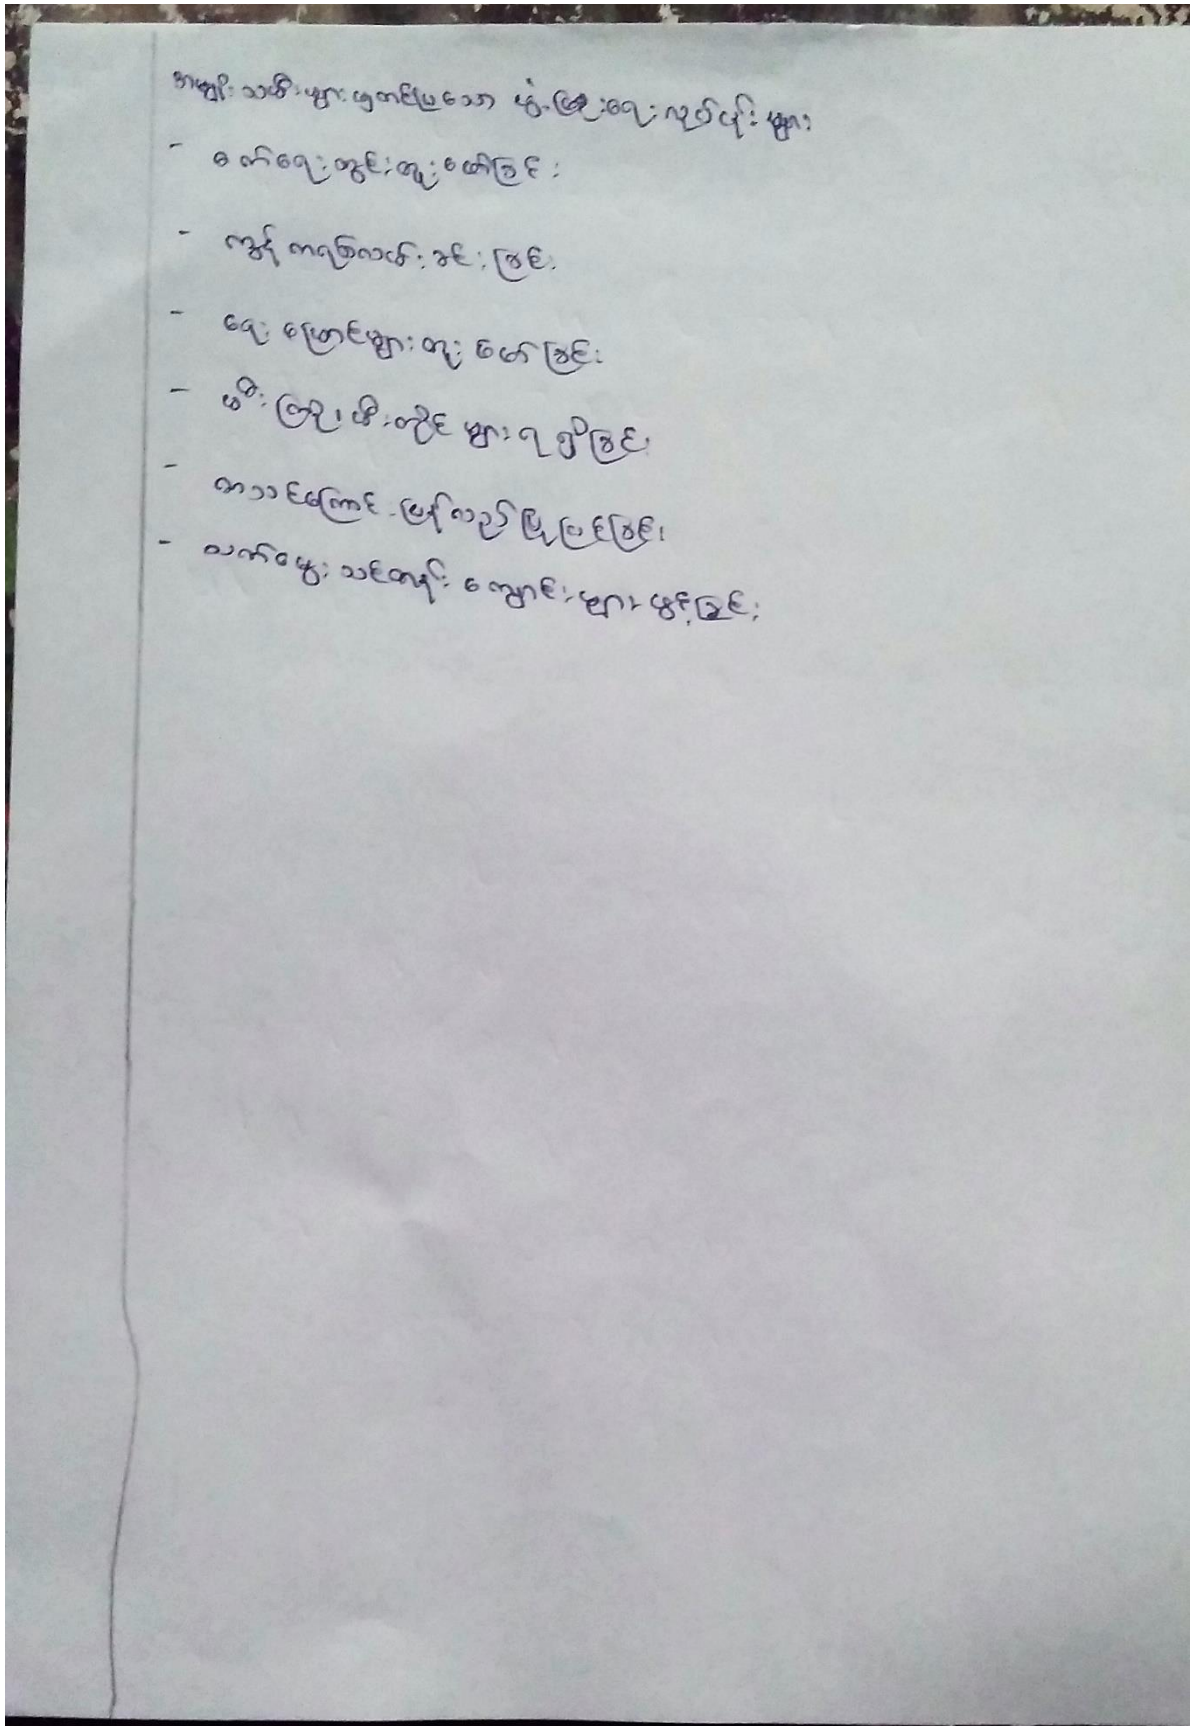 အမျိုးသမီးများမှတင်ပြသော ဖွံ့ဖြိုးရေးလုပ်ငန်းများ
- စက်ရေးတွင်းတူးဖော်ခြင်း
- ကွန်ကရစ်လမ်းခင်းခြင်း
- ရေမြောင်းများတူးဖော်ခြင်း
- မီးကြိုး၊ မီးတိုင်များရရှိခြင်း
- စာသင်ကျောင်းပြန်လည်ပြုပြင်ခြင်း
- သက်မွေးသင်တန်းကျောင်းများဖွင့်ခြင်း